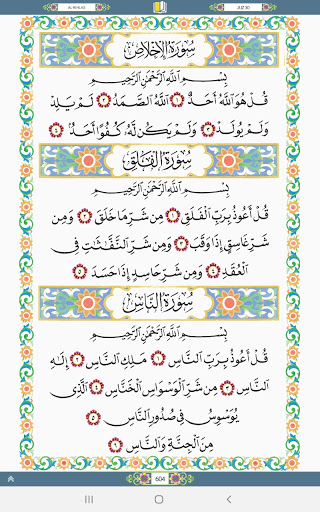 AL-IKHLAS
JUZ'30
سُورَةُ الإِخْلَاصِ
بِسْمِ اللَّهِ الرَّحْمَٰنِ الرَّحِيمِ
قُلْ هُوَ اللَّهُ أَحَدٌ ١ اللَّهُ الصَّمَدُ ٢ لَمْ يَلِدْ
وَلَمْ يُولَدْ ٣ وَلَمْ يَكُن لَّهُ كُفُوًا أَحَدٌ ٤
سُورَةُ الْفَلَقِ
بِسْمِ اللَّهِ الرَّحْمَٰنِ الرَّحِيمِ
قُلْ أَعُوذُ بِرَبِّ الْفَلَقِ ١ مِن شَرِّ مَا خَلَقَ ٢ وَمِن
شَرِّ غَاسِقٍ إِذَا وَقَبَ ٣ وَمِن شَرِّ النَّفَّاثَاتِ فِي
الْعُقَدِ ٤ وَمِن شَرِّ حَاسِدٍ إِذَا حَسَدَ ٥
سُورَةُ النَّاسِ
بِسْمِ اللَّهِ الرَّحْمَٰنِ الرَّحِيمِ
قُلْ أَعُوذُ بِرَبِّ النَّاسِ ١ مَلِكِ النَّاسِ ٢ إِلَٰهِ
النَّاسِ ٣ مِن شَرِّ الْوَسْوَاسِ الْخَنَّاسِ ٤ الَّذِي
يُوَسْوِسُ فِي صُدُورِ النَّاسِ ٥
مِنَ الْجِنَّةِ وَالنَّاسِ ٦
604